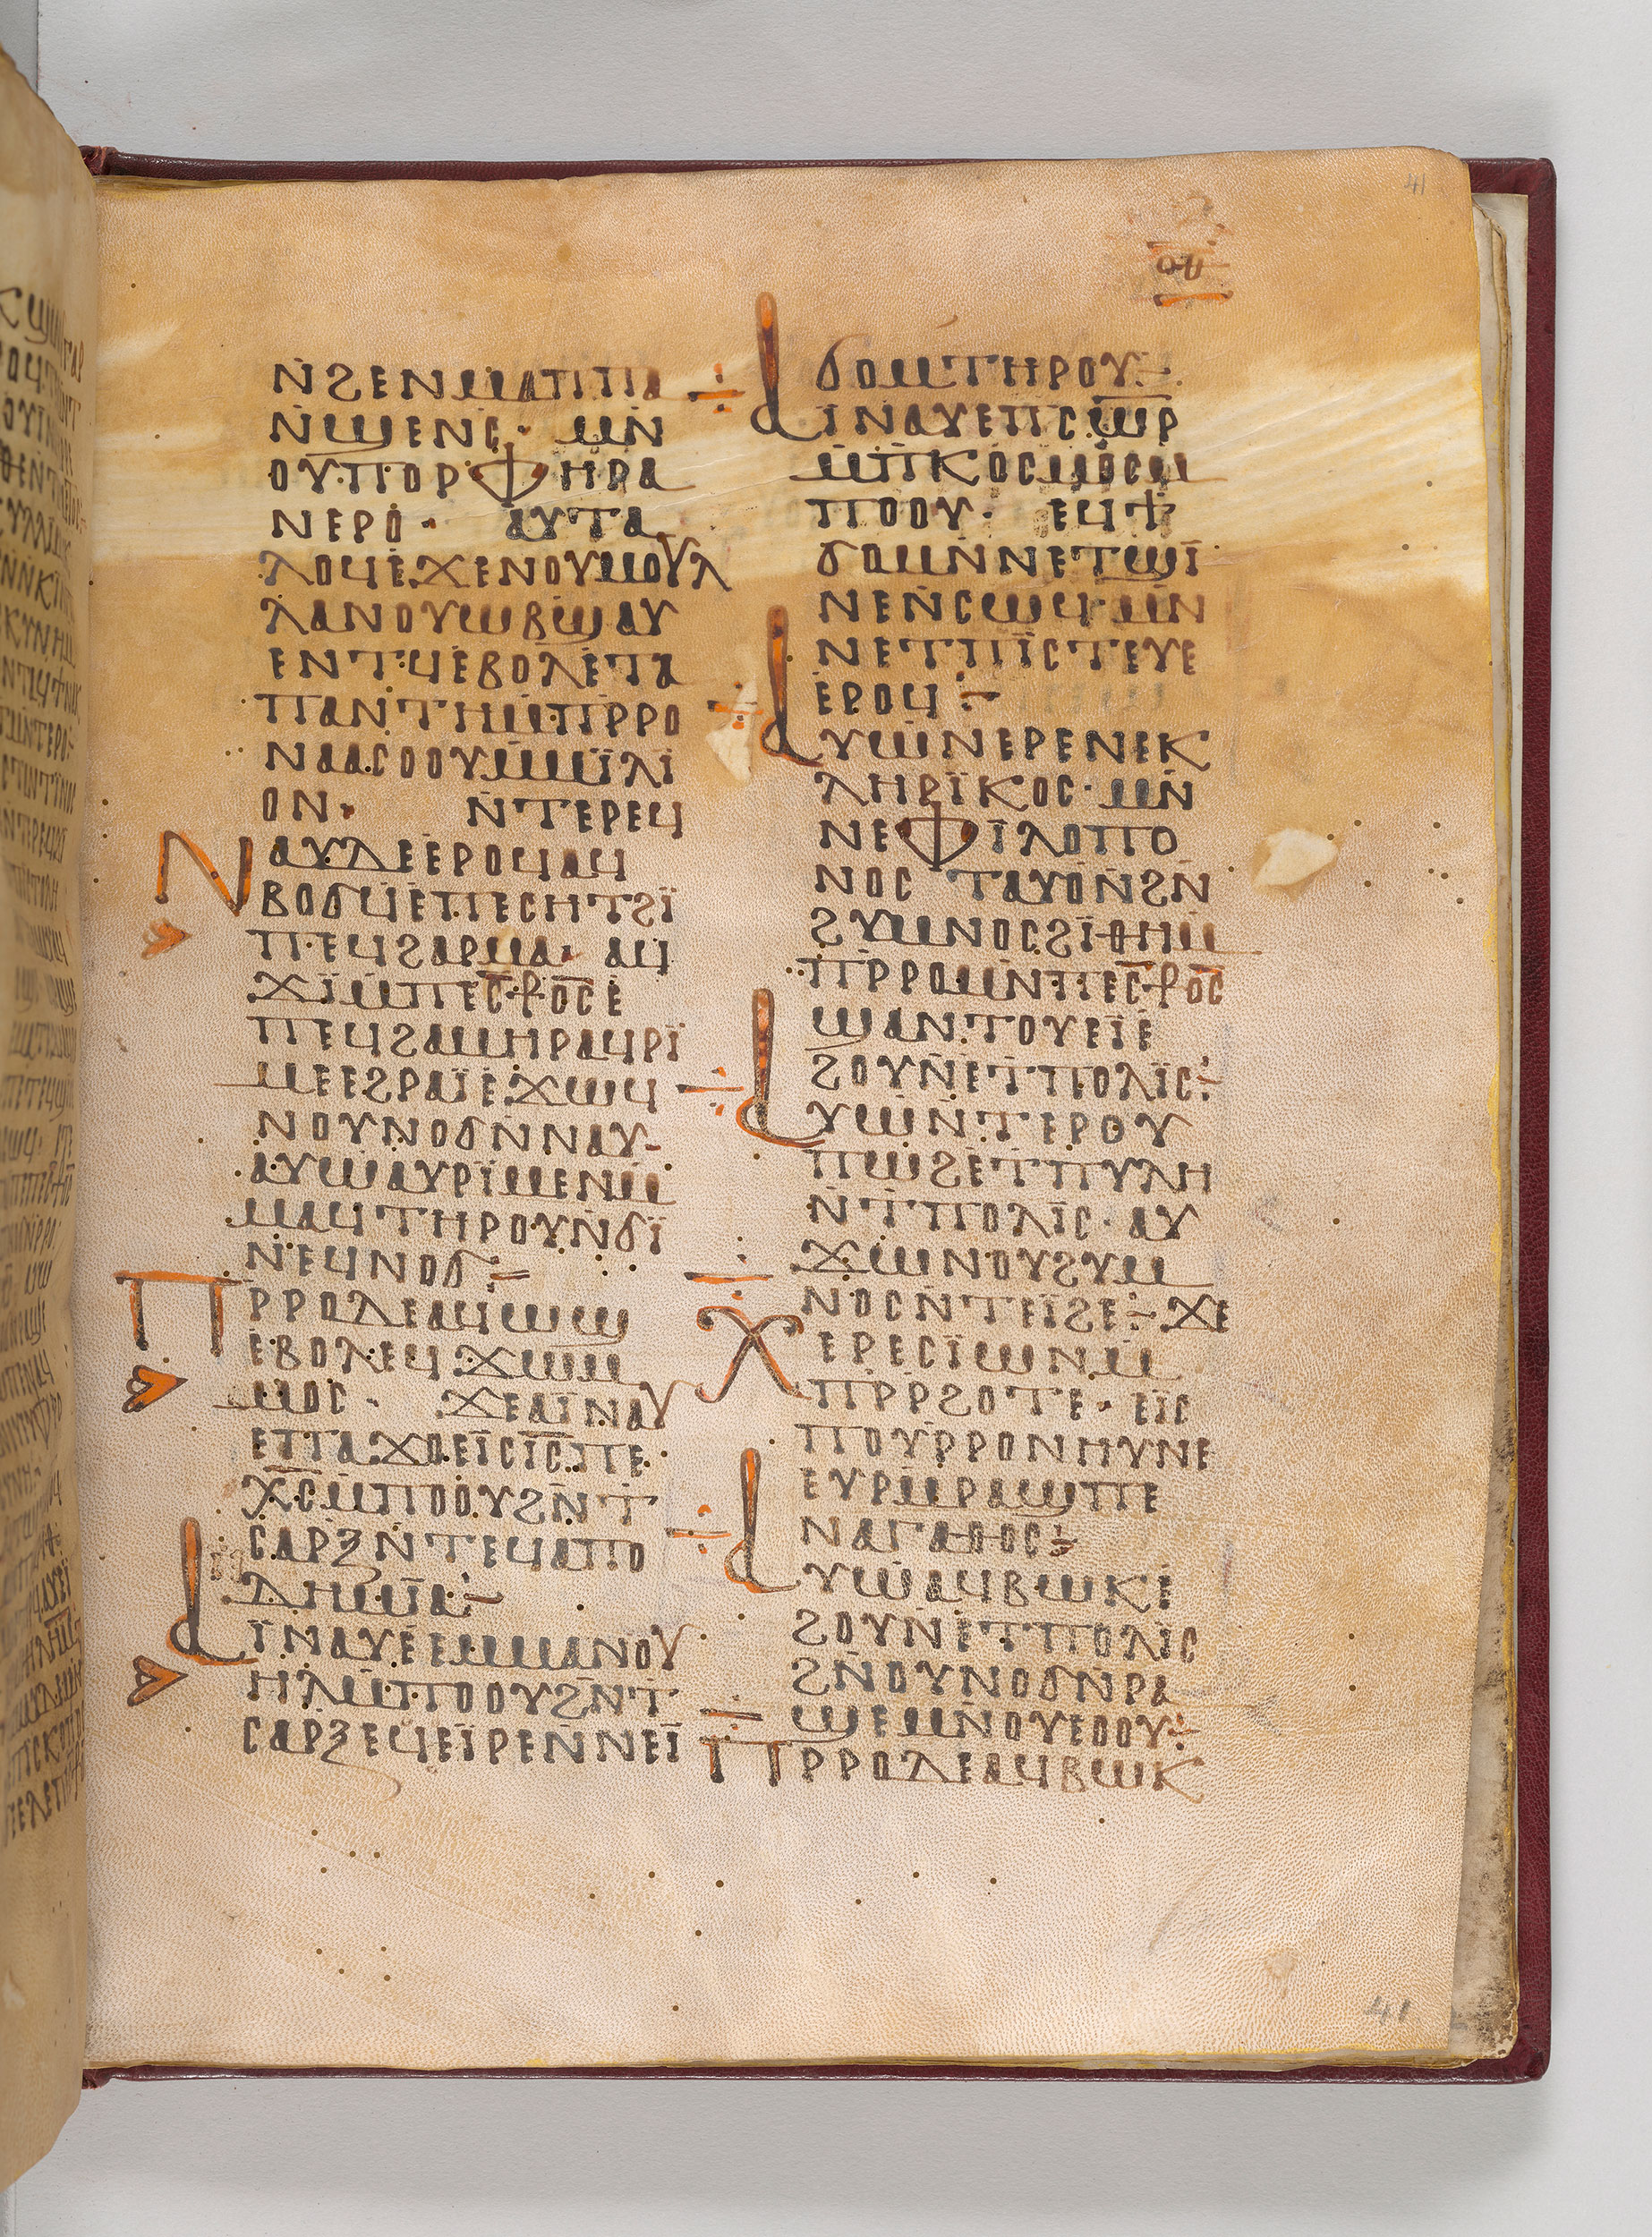 41
ⲟⲑ
ⲛ̇ϩⲉⲛⲙⲁⲡⲡⲁ
ⲛ̇ϣⲉⲛⲥ· ⲙⲛ̇
ⲟⲩⲡⲟⲣⲫⲏⲣⲁ
ⲛⲉⲣⲟ· ⲁⲩⲧⲁ
ⲗⲟϥⲉ̇ϫⲉⲛⲟⲩⲙⲟⲩⲗ
ⲗⲁⲛⲟⲩⲱⲃϣ̇ⲁⲩ
ⲉⲛⲧϥ̇ⲉⲃⲟⲗⲉ̇ⲧⲁ
ⲡⲁⲛⲧⲏⲙ̇ⲡⲣ̇ⲣⲟ
ⲛⲁⲁⲥⲟⲟⲩⲙ̇ⲙⲓ̈ⲗⲓ̈
ⲟⲛ· ⲛ̇ⲧⲉⲣⲉϥ
ⲛⲁⲩⲇⲉⲉ̇ⲣⲟϥⲁϥ
ⲃⲟϭϥ̇ⲉ̇ⲡⲉⲥⲏⲧϩⲓ̈
ⲡⲉϥϩⲁⲣⲙⲁ· ⲁϥ
ϫⲓ̈ⲙ̇ⲡⲉⲥ̅ⲣ̅ⲟ̅ⲥ̅ⲉ̇
ⲡⲉϥϩⲁⲙⲏⲣⲁϥⲣⲓ̈
ⲙⲉⲉϩⲣⲁⲓ̈ⲉ̇ϫⲱϥ
ⲛⲟⲩⲛⲟϭⲛ̇ⲛⲁⲩ-
ⲁⲩⲱ̇ⲁⲩⲣⲓ̈ⲙⲉⲛⲙ̇
ⲙⲁϥⲧⲏⲣⲟⲩⲛ̇ϭⲓ̈
ⲛⲉϥⲛⲟϭ:-
ⲡⲣ̇ⲣⲟⲇⲉⲁϥⲱϣ
ⲉ̇ⲃⲟⲗⲉϥϫⲱⲙ̇
ⲙⲟⲥ· ϫⲉⲁⲓ̈ⲛⲁⲩ
ⲉⲡⲁϫⲟⲉⲓ̈ⲥⲓ̅ⲥ̅ⲡⲉ
ⲭ̅ⲥ̅ⲙ̇ⲡⲟⲟⲩϩⲛ̇ⲧ
ⲥⲁⲣⲝⲛ̇ⲧⲉϥⲁⲡⲟ
ⲇⲏⲙⲓ̈ⲁ:-
ⲁⲓ̈ⲛⲁⲩⲉ̇ⲉⲙⲙⲁⲛⲟⲩ
ⲏⲗⲙ̇ⲡⲟⲟⲩϩⲛ̇ⲧ
ⲥⲁⲣⲝⲉϥⲉⲓ̈ⲣⲉⲛ̇ⲛⲉⲓ̈
ϭⲟⲙⲧⲏⲣⲟⲩ:-
ⲁⲓ̈ⲛⲁⲩⲉⲡⲥⲱ̅ⲣ̅
ⲙ̇ⲡⲕⲟⲥⲙⲟⲥⲙ̇
ⲡⲟⲟⲩ· ⲉϥϯ
ϭⲟⲙⲛ̇ⲛⲉⲧϣⲓ̈
ⲛⲉⲛ̇ⲥⲱϥ·ⲙⲛ̇
ⲛⲉⲧⲡⲓ̈ⲥⲧⲉⲩⲉ
ⲉ̇ⲣⲟϥ:-
ⲁⲩⲱ̇ⲛⲉⲣⲉⲛⲉⲕ
ⲗⲏⲣⲓ̈ⲕⲟⲥ·ⲙⲛ̇
ⲛⲉⲫⲓ̈ⲗⲟⲡⲟ
ⲛⲟⲥ ⲧⲁⲩⲟ̇ⲛ̇ϩⲛ̇
ϩⲩⲙⲛⲟⲥϩⲓ̈ⲑⲏⲙ̇
ⲡⲣ̇ⲣⲟⲙⲛ̇ⲡⲉⲥ̅ⲣ̅ⲟ̅ⲥ̅
ϣⲁⲛⲧⲟⲩⲉⲓ̈ⲉ̇
ϩⲟⲩⲛⲉⲧⲡⲟⲗⲓ̈ⲥ:-
ⲁⲩⲱ̇ⲛ̇ⲧⲉⲣⲟⲩ
ⲡⲱϩⲉ̇ⲧⲡⲩⲗⲏ
ⲛ̇ⲧⲡⲟⲗⲓ̈ⲥ· ⲁⲩ
ϫⲱⲛⲟⲩϩⲩⲙ
ⲛⲟⲥⲛ̇ⲧⲉⲓ̈ϩⲉ:- ϫⲉ
ⲭⲉⲣⲉⲥⲓ̈ⲱⲛⲙ̇
ⲡⲣ̇ⲣϩⲟⲧⲉ· ⲉⲓ̈ⲥ
ⲡⲟⲩⲣ̇ⲣⲟⲛⲏⲩⲛⲉ
ⲉⲩⲣⲙ̇ⲣⲁϣⲡⲉ
ⲛⲁⲅⲁⲑⲟⲥ:-
ⲁⲩⲱ̇ⲁϥⲃⲱⲕⲉ̇
ϩⲟⲩⲛⲉ̇ⲧⲡⲟⲗⲓ̈ⲥ
ϩⲛ̇ⲟⲩⲛⲟϭⲛ̇ⲣⲁ
ϣⲉⲙⲛ̇ⲟⲩⲉⲟⲟⲩ:-
ⲡⲣ̇ⲣⲟⲇⲉⲁϥⲃⲱⲕ
41